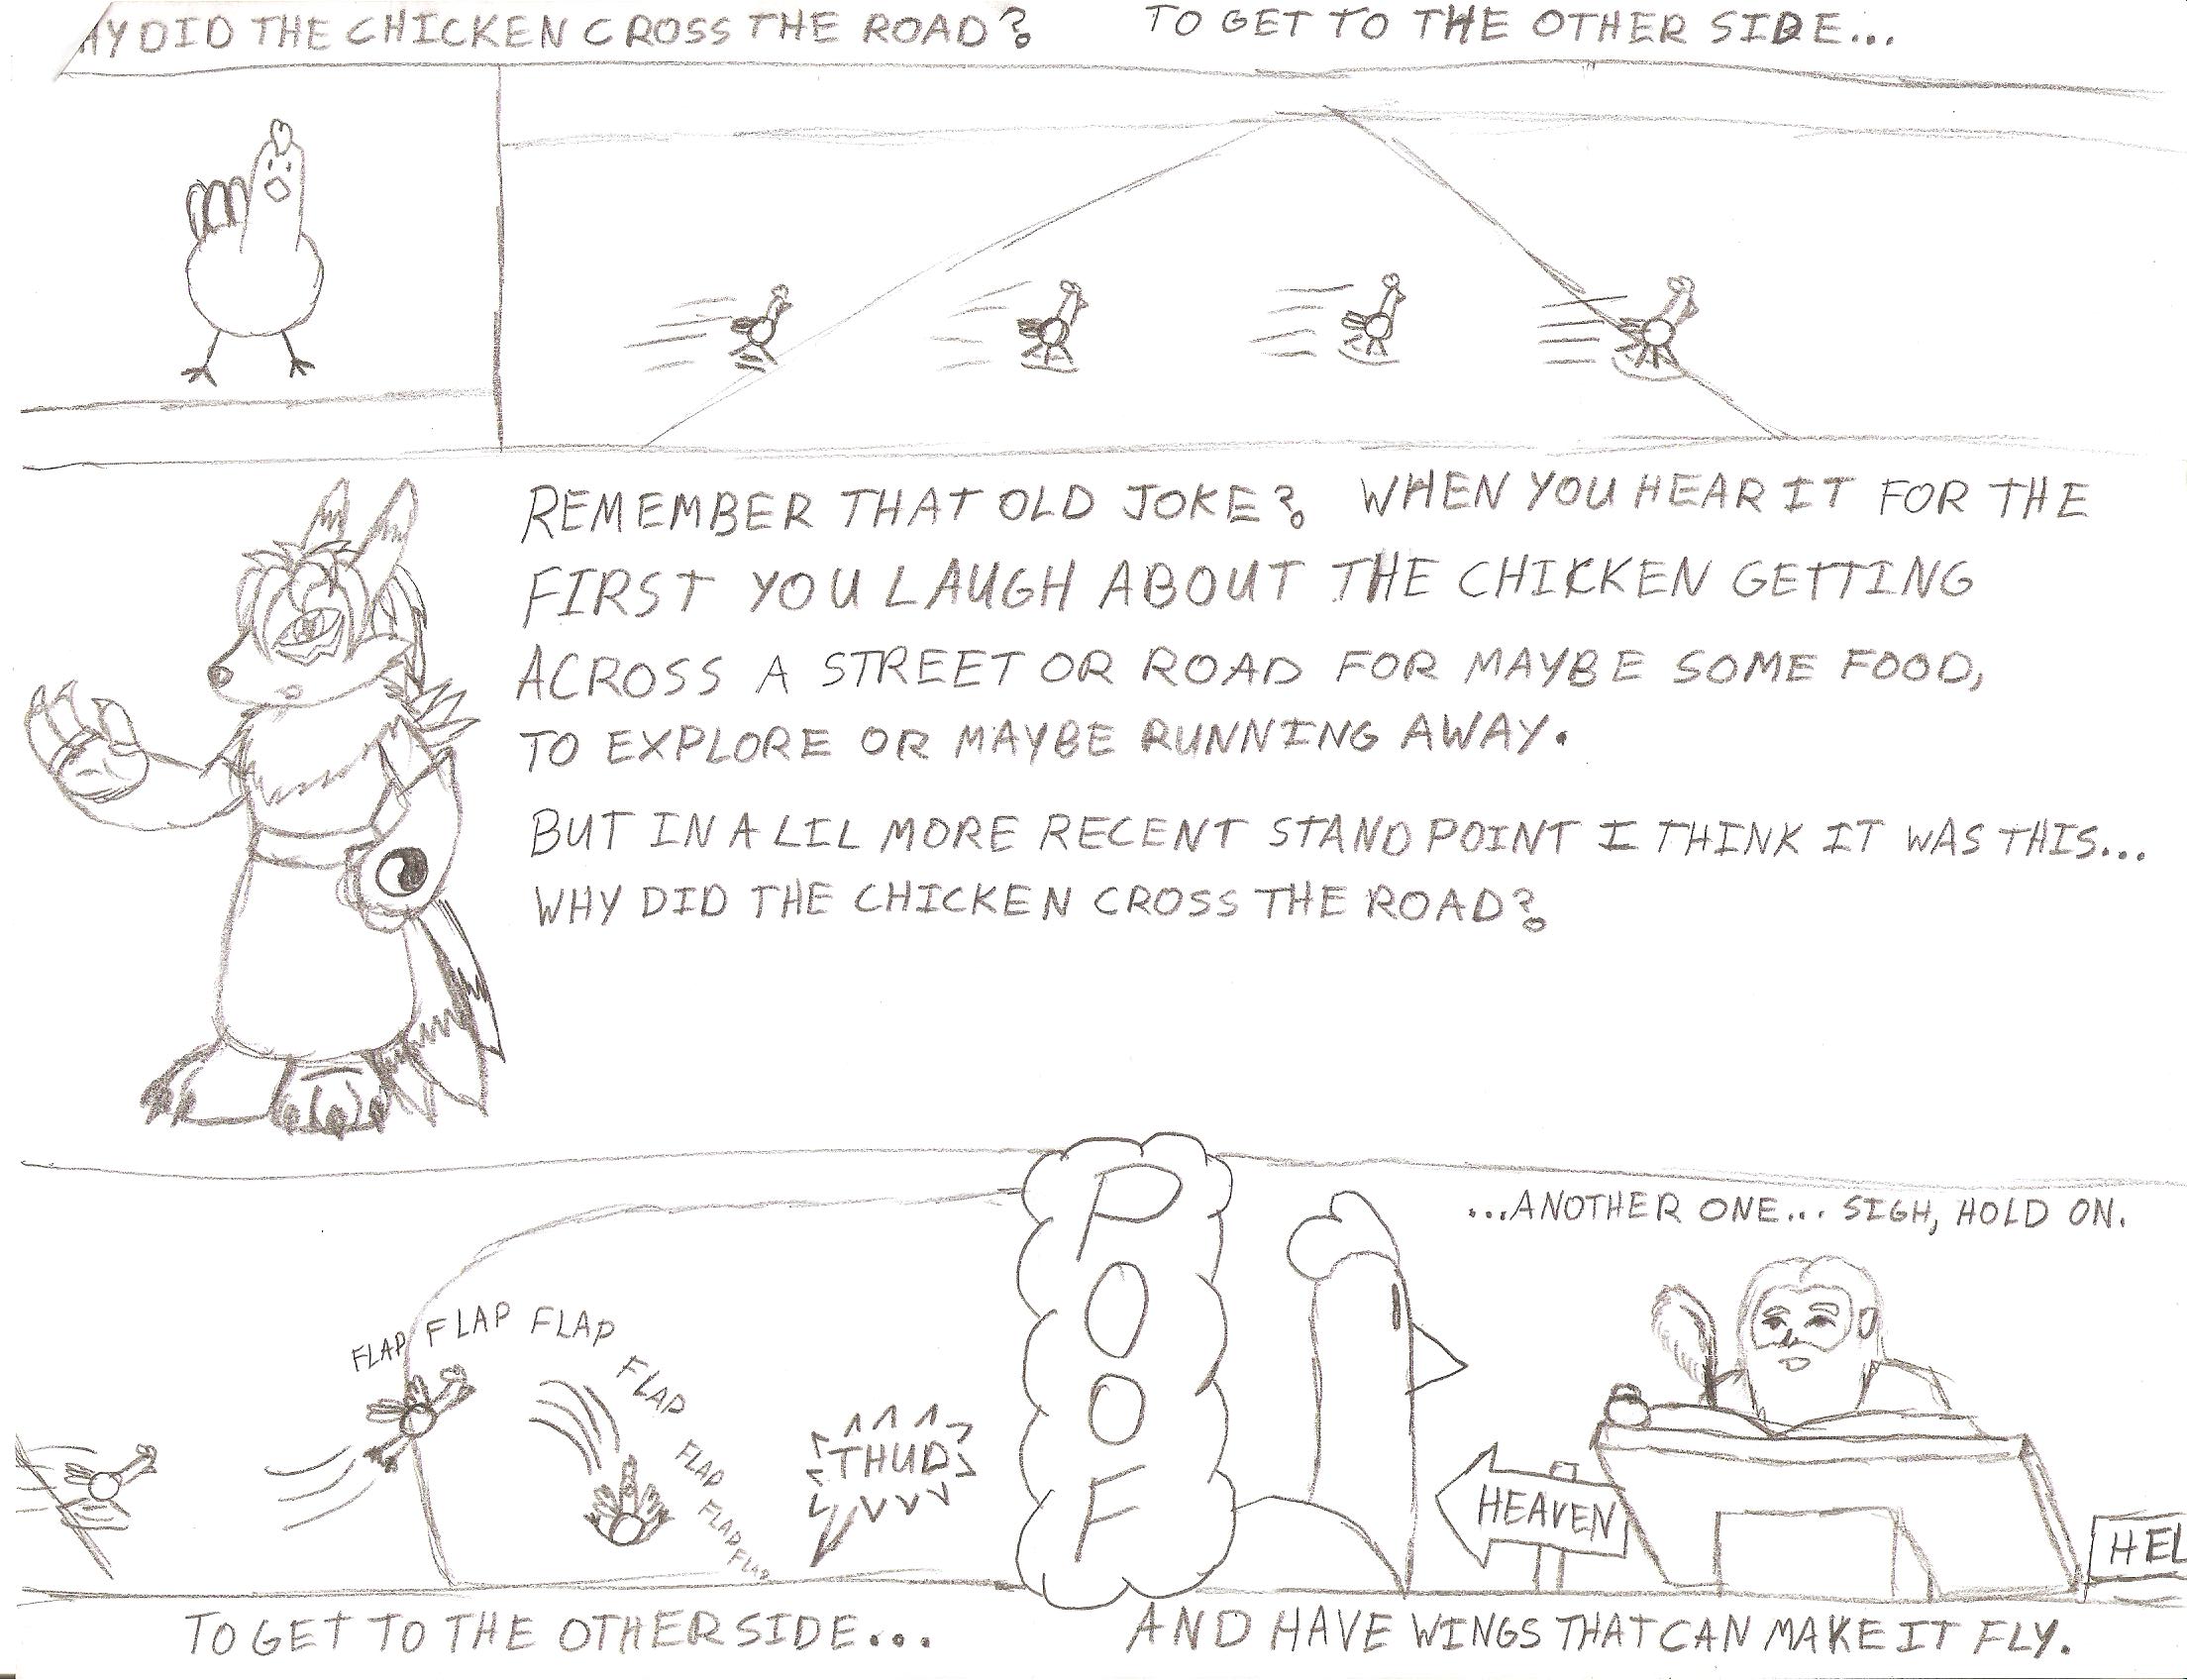 HY DID THE CHICKEN CROSS THE ROAD?
TO GET TO THE OTHER SIDE...
REMEMBER THAT OLD JOKE? WHEN YOU HEAR IT FOR THE
FIRST YOU LAUGH ABOUT THE CHICKEN GETTING
ACROSS A STREET OR ROAD FOR MAYBE SOME FOOD,
TO EXPLORE OR MAYBE RUNNING AWAY.
BUT IN A LIL MORE RECENT STAND POINT I THINK IT WAS THIS...
WHY DID THE CHICKEN CROSS THE ROAD?
FLAP FLAP FLAP FLAP FLAP FLAP FLAP
THUD
POOF
...ANOTHER ONE... SIGH, HOLD ON.
HEAVEN
HEL
TO GET TO THE OTHER SIDE...
AND HAVE WINGS THAT CAN MAKE IT FLY.